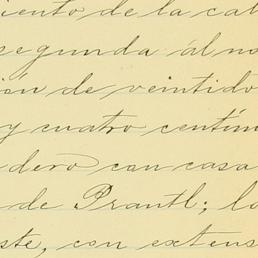 iento de la cal
segunda al no
ión de veintido
y cuatro centím
dero con casa
de Prantl; lo
ste, con extens